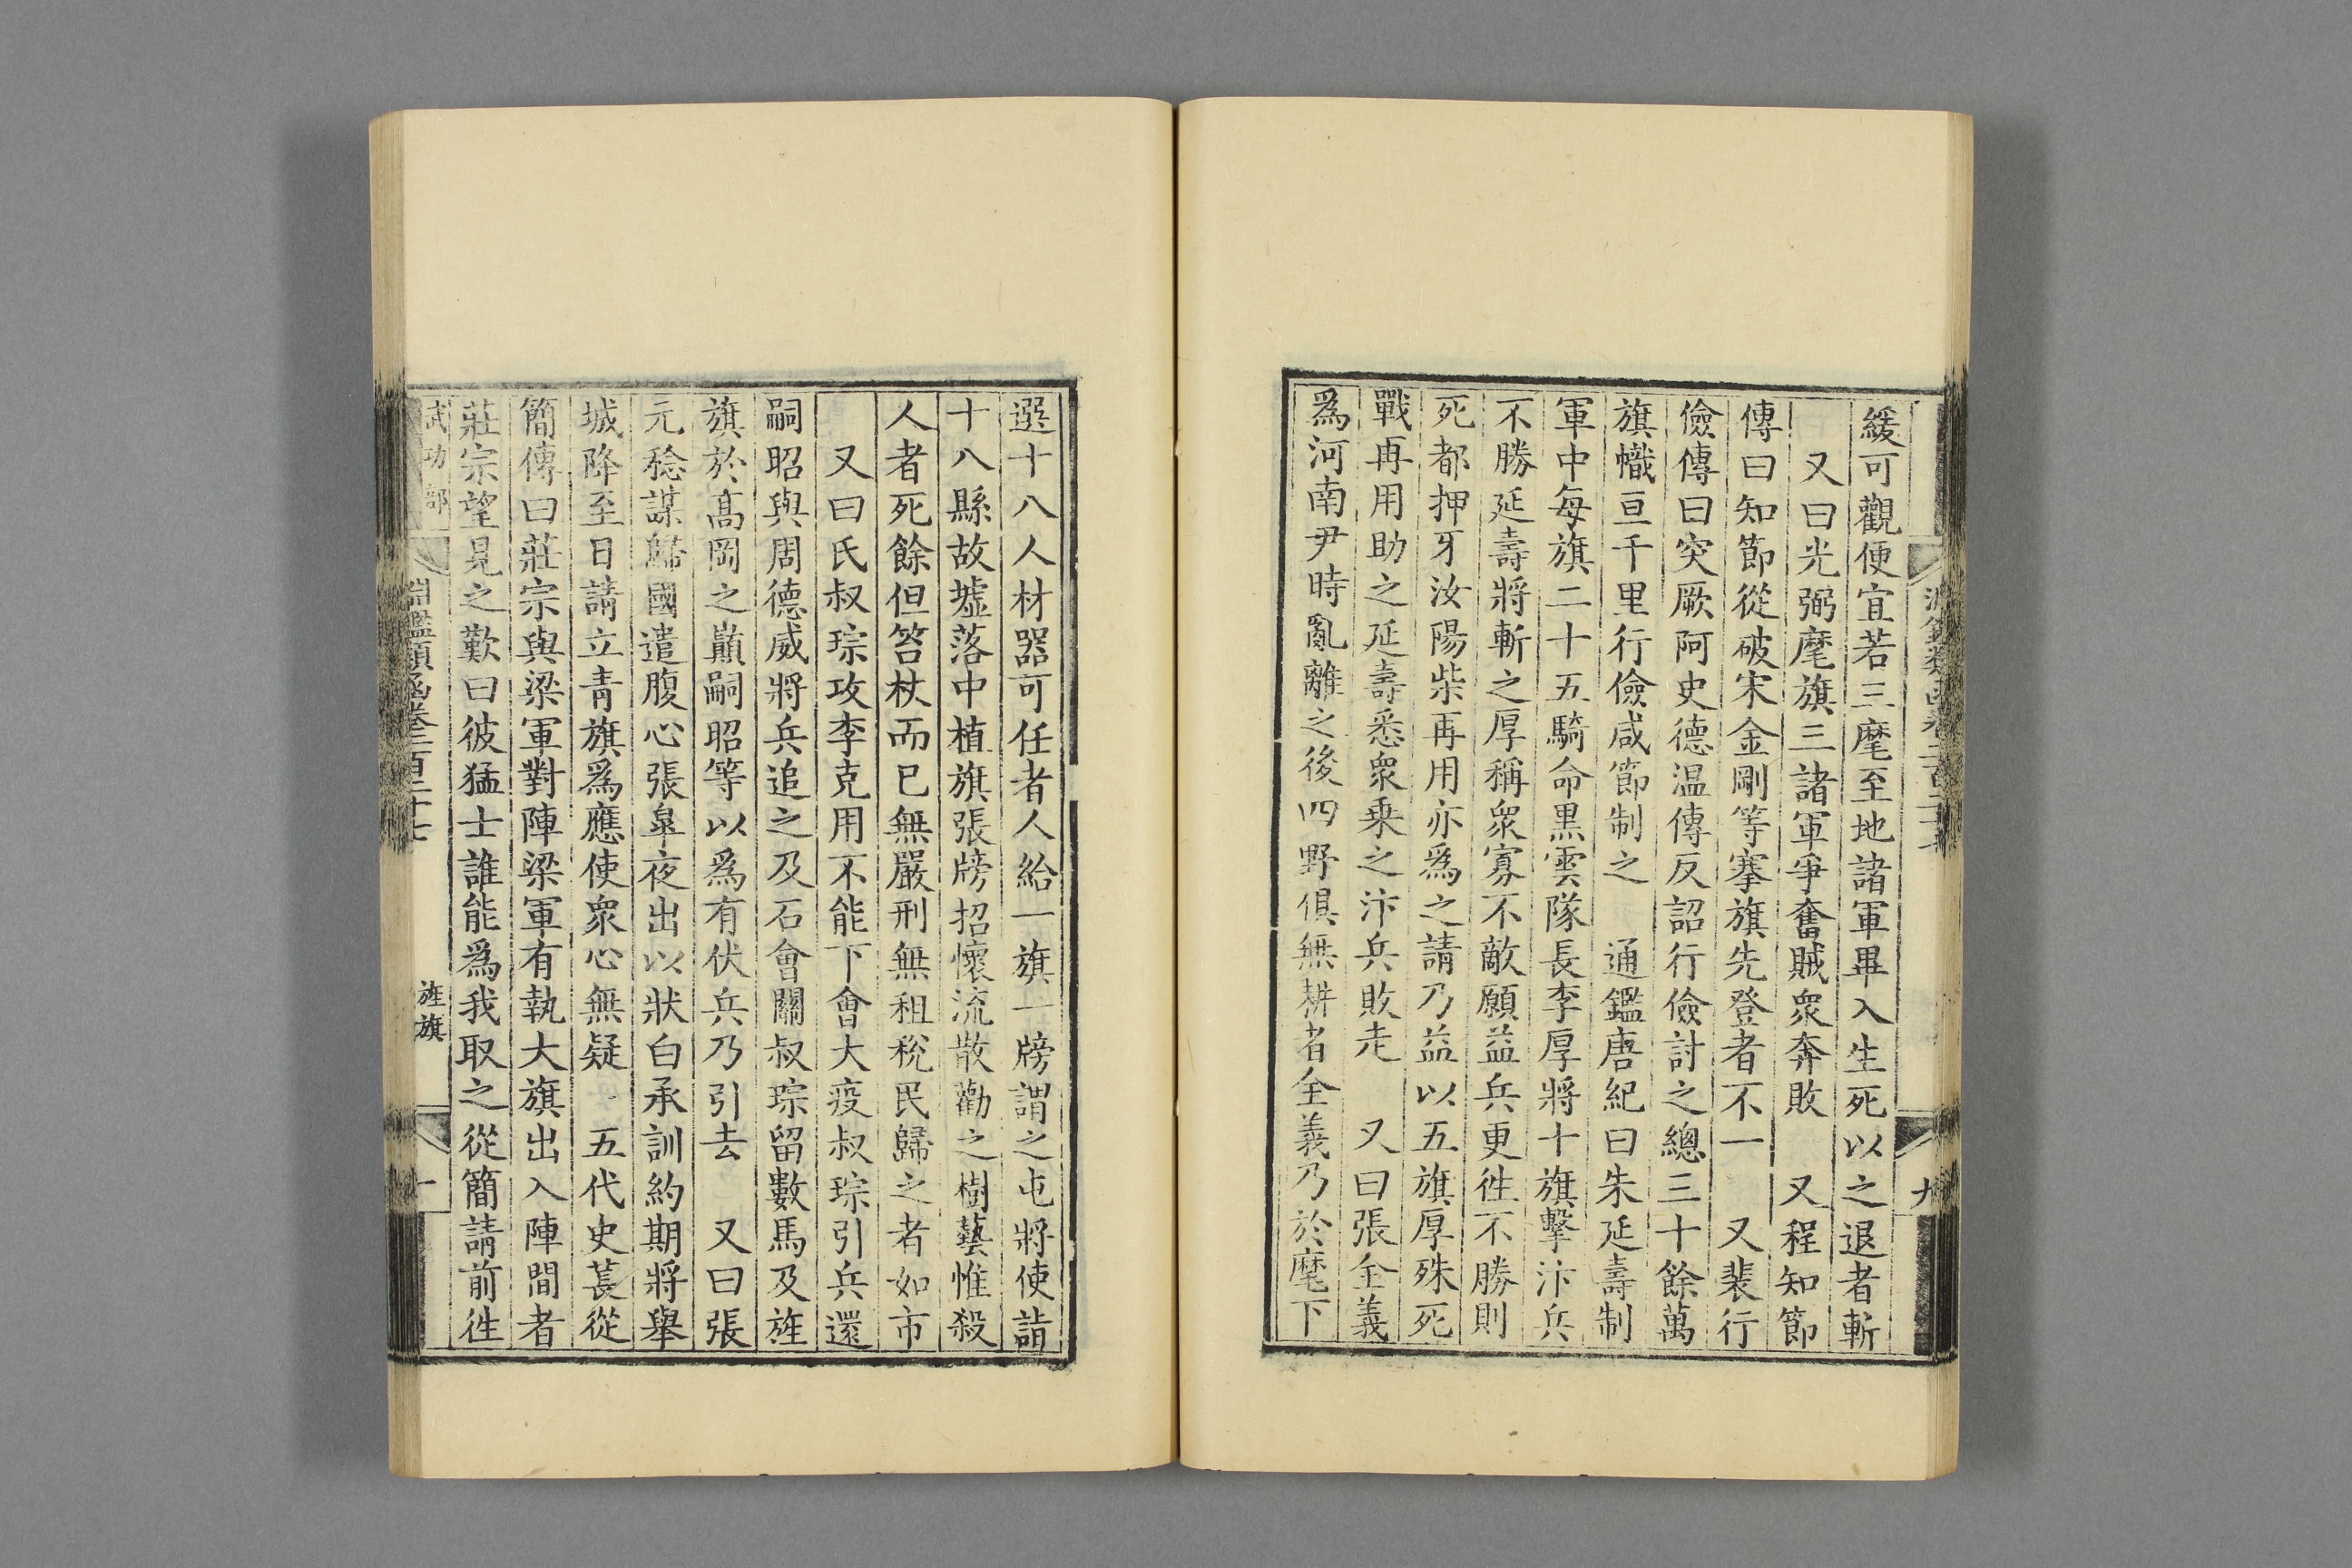 緩可觀便宜若三麾至地諸軍畢入生死以之退者斬
又曰光弼麾旗三諸軍爭奮賊衆奔敗　又程知節
傳曰知節從破宋金剛等搴旗先登者不一　又裴行
儉傳曰突厥阿史德温傳反詔行儉討之總三十餘萬
旗幟亘千里行儉咸節制之　通鑑唐紀曰朱延壽制
軍中每旗二十五騎命黒雲隊長李厚將十旗擊汴兵
不勝延壽將斬之厚稱衆寡不敵願益兵更徃不勝則
死都押牙汝陽柴再用亦爲之請乃益以五旗厚殊死
戰再用助之延壽悉衆乗之汴兵敗走　又曰張全義
爲河南尹時亂離之後四野俱無耕者全義乃於麾下
選十八人材器可任者人給一旗一牓謂之屯將使詣
十八縣故墟落中植旗張牓招懷流散勸之樹藝惟殺
人者死餘但笞杖而已無嚴刑無租稅民歸之者如市
又曰氏叔琮攻李克用不能下會大疫叔琮引兵還
嗣昭與周德威將兵追之及石會關叔琮留數馬及旌
旗於高岡之巔嗣昭等以爲有伏兵乃引去　又曰張
元稔謀歸國遣腹心張臯夜出以狀白承訓約期將舉
城降至日請立青旗爲應使衆心無疑　五代史萇從
簡傳曰莊宗與梁軍對陣梁軍有執大旗出入陣間者
莊宗望見之歎曰彼猛士誰能爲我取之從簡請前徃
武功部　淵鑑類函卷二百二十七　旌旗　十